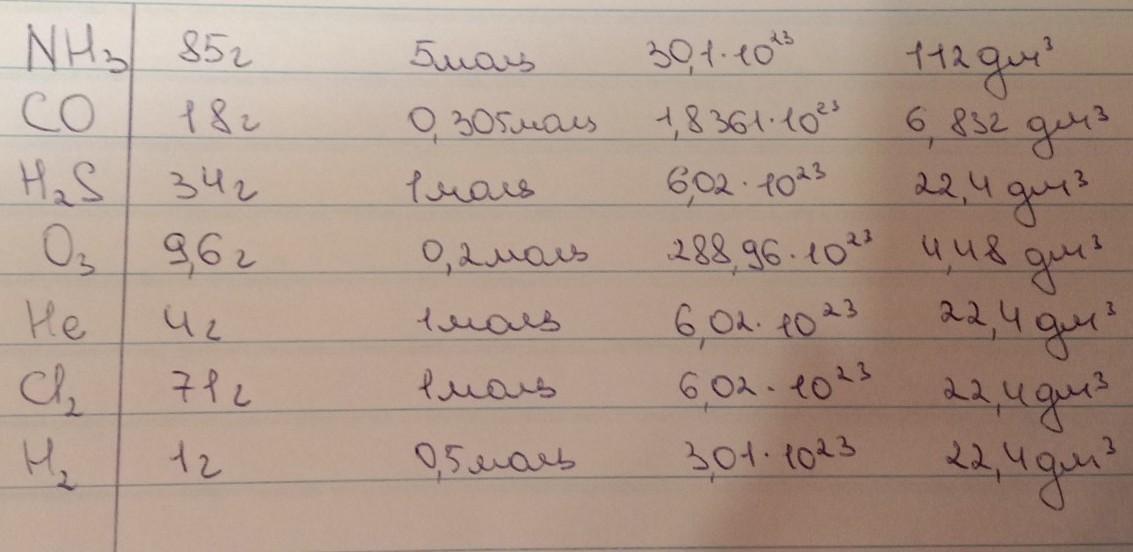 NH₃ 85г 5моль 30,1·10²³ 112 дм³
CO 18г 0,305моль 1,8361·10²³ 6,832 дм³
H₂S 34г 1моль 6,02·10²³ 22,4 дм³
O₃ 9,6г 0,2моль 288,96·10²³ 4,48 дм³
He 4г 1моль 6,02·10²³ 22,4 дм³
Cl₂ 71г 1моль 6,02·10²³ 22,4 дм³
H₂ 1г 0,5моль 3,01·10²³ 22,4 дм³